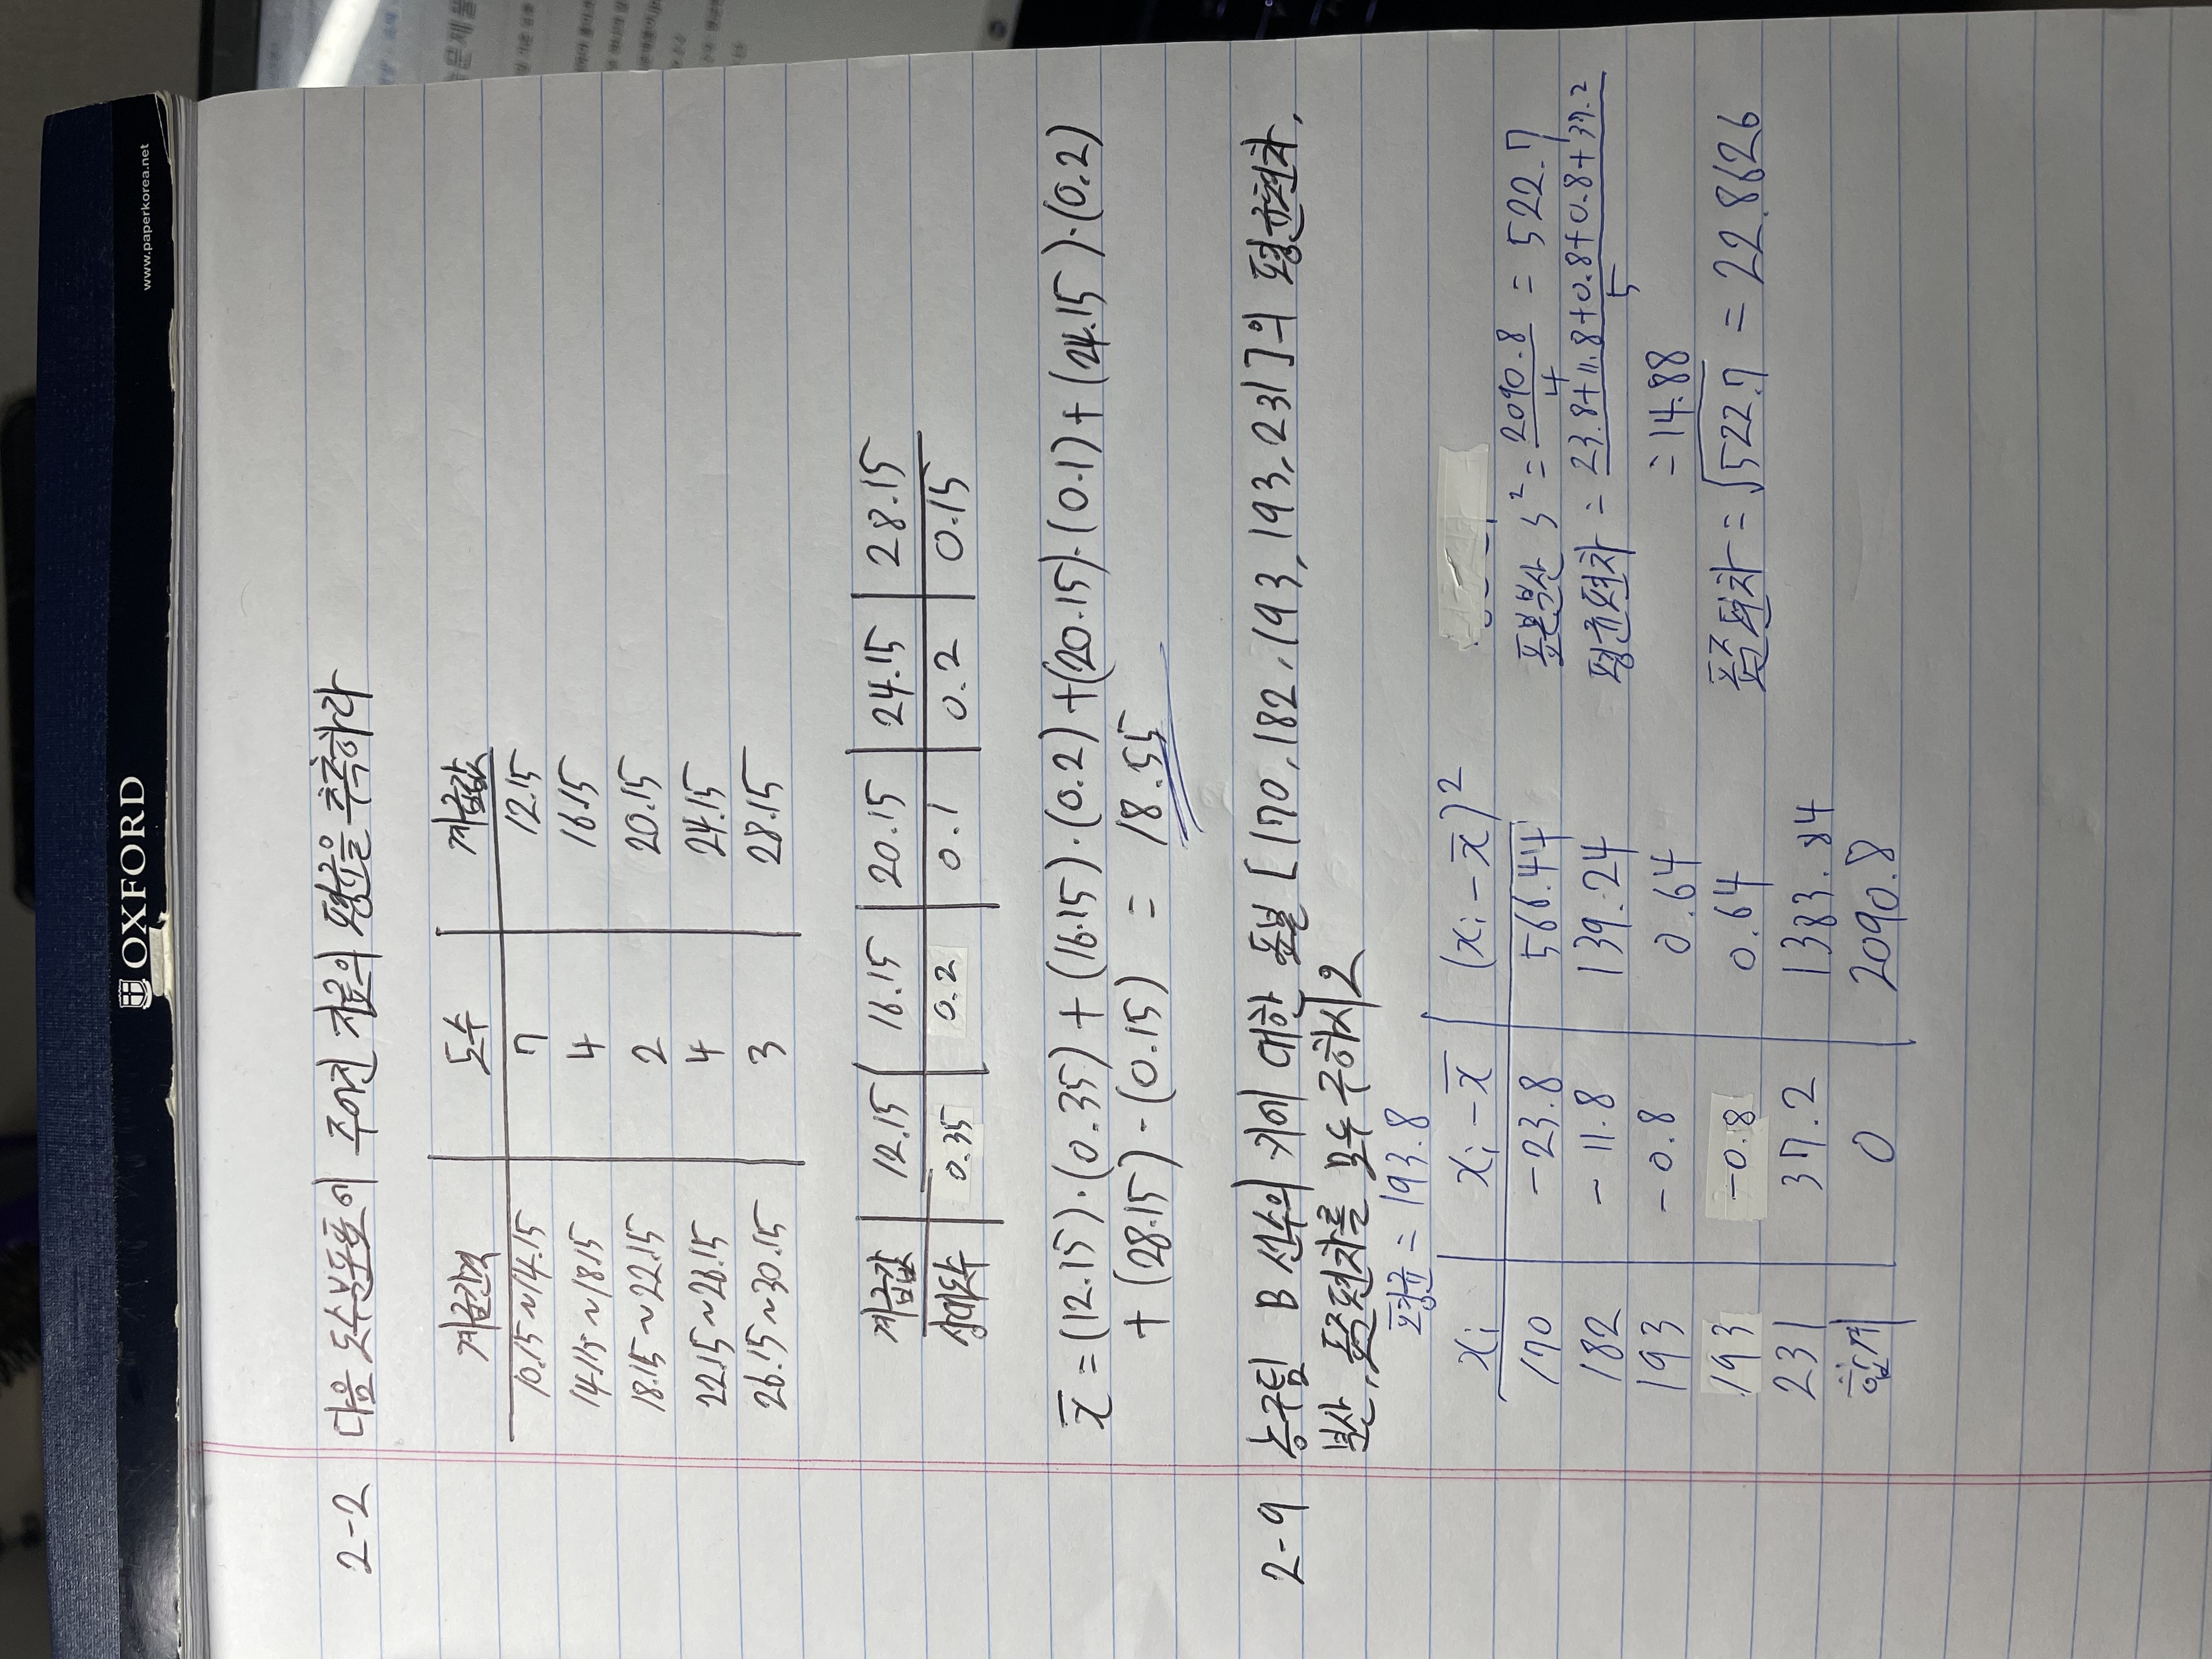 OXFORD
www.paperkorea.net
2-2 다음 도수분포표에 주어진 자료의 평균을 추측하라
계급간격 도수 계급값
10.15~14.15 7 12.15
14.15~18.15 4 16.15
18.15~22.15 2 20.15
22.15~26.15 4 24.15
26.15~30.15 3 28.15
계급값 12.15 16.15 20.15 24.15 28.15
상대도수 0.35 0.2 0.1 0.2 0.15
x̅ = (12.15)·(0.35) + (16.15)·(0.2) + (20.15)·(0.1) + (24.15)·(0.2)
+ (28.15)·(0.15) = 18.55
2-9 농구팀 B 선수의 키에 대한 표본 [170, 182, 193, 193, 231]의 평균편차,
분산, 표준편차를 모두 구하시오
평균 = 193.8
xᵢ xᵢ - x̅ (xᵢ - x̅)²
170 -23.8 566.44
182 -11.8 139.24
193 -0.8 0.64
193 -0.8 0.64
231 37.2 1383.84
합계 0 2090.8
표본분산 s² = 2090.8/4 = 522.7
평균편차 = 23.8+11.8+0.8+0.8+37.2/5
= 14.88
표준편차 = √522.7 = 22.8626